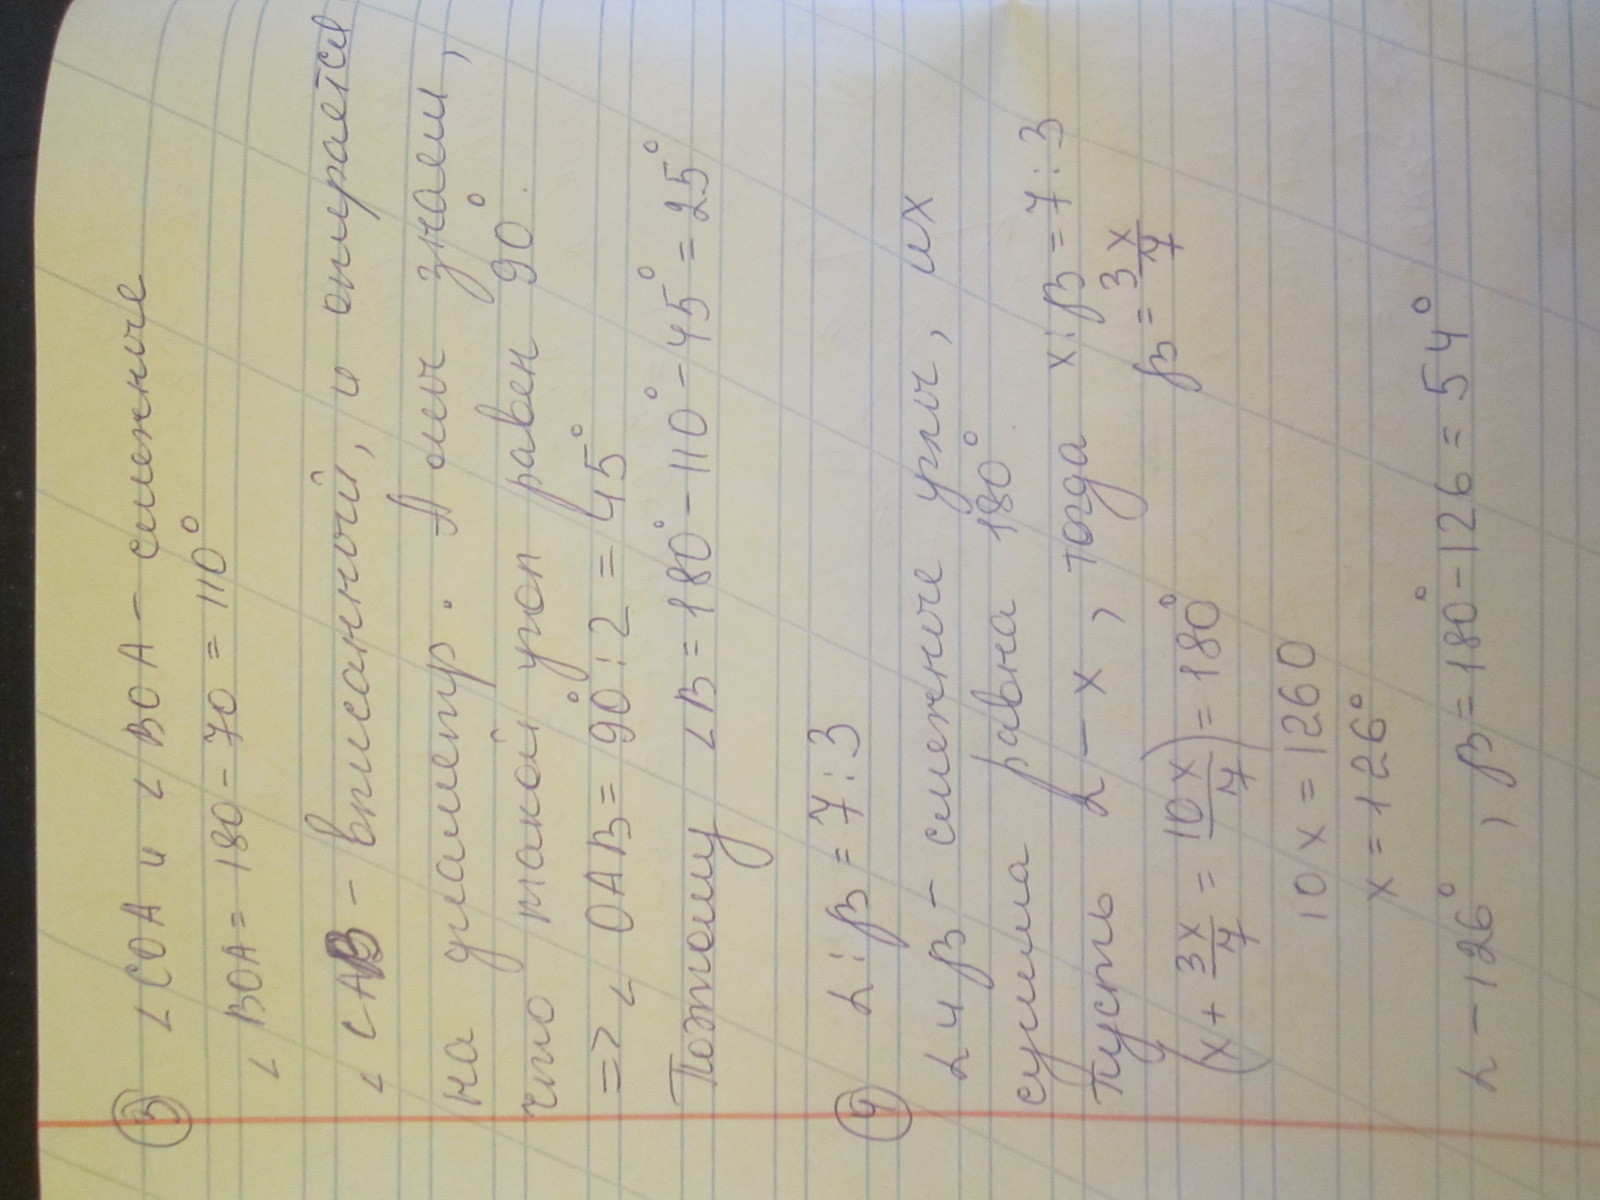 ③ ∠COA и ∠BOA – смежные
∠BOA = 180 – 70 = 110°
∠CAB – вписанный, и опирается
на диаметр. А мы знаем,
что такой угол равен 90°.
=> ∠OAB = 90° : 2 = 45°
Поэтому ∠B = 180° – 110° – 45° = 25°
④ α : β = 7 : 3
α и β – смежные углы, их
сумма равна 180°
Пусть α – x, тогда x : β = 7 : 3
β = 3x/7
(x + 3x/7 = 10x/7) = 180°
10x = 1260
x = 126°
α – 126°, β = 180° – 126 = 54°